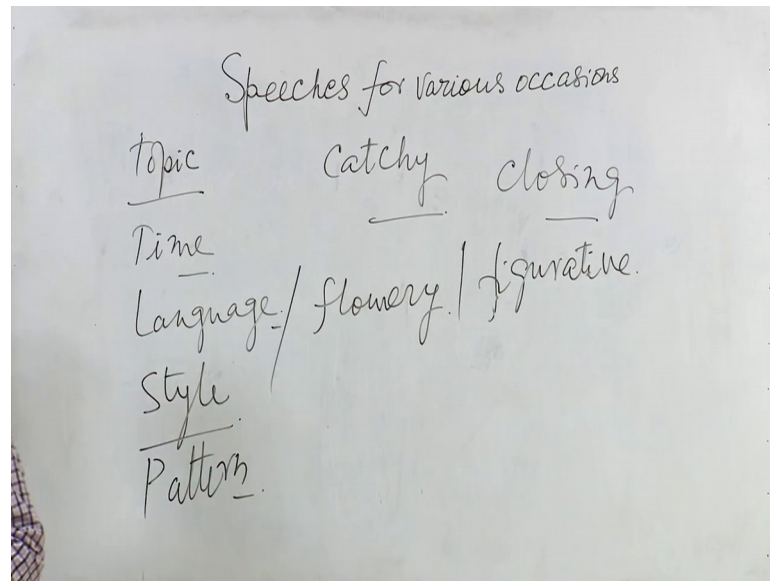 Speeches for various occasions
Topic Catchy closing
Time
Language / flowery / figurative.
Style
Pattern.